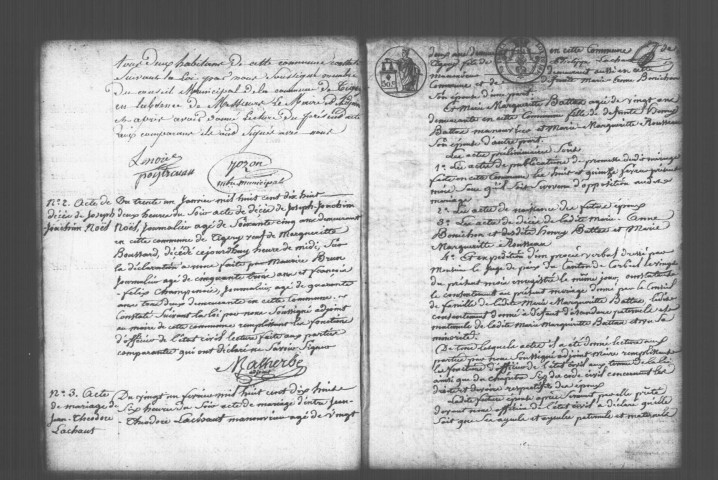 tous deux habitans de cette commune
suivant la Loi par nous Soussigné membre
du conseil Municipal de la commune de Tigery
en l'absence de Monsieur Le Maire et adjoint
et après avoir donné Lecture du présent acte
aux comparans ils ont Signés avec nous
Lenoir
yozon
mbre municipal
N.º 2. Acte de
décès de Joseph
Joachim Noël
Du trente un Janvier mil huit cent dix huit
deux heures du Soir acte de décès de Joseph Joachim
Noël, Journalier agé de Soixante cinq ans demeurant
en cette commune de Tigery veuf de Margueritte
Boussard, décédé cejourdhuy heure de midi, Sur
la déclaration a nous faite par Maurice Brun
Journalier agé de cinquante trois ans et françois
félix Champenois, Journalier agé de quarante
ans tous deux demeurants en cette commune.
Constaté Suivant la loi par nous Soussigné adjoint
au maire de cette commune remplissant les fonctions
d'officier de l'état civil lecture faite aux parties
comparantes qui ont déclaré ne Savoir Signer
Malherbe
N.º 3. Acte
de mariage de
Jean Theodore
Lachaut
Du vingt un février mil huit cent dix huit
Six heures du Soir acte de mariage d'entre Jean
Theodore Lachaut manouvrier agé de vingt
deux ans demeurant en cette Commune
Tigery fils de Philippe Lachaut
manouvrier demeurant aussi en cette
Commune et de défunte Marie Anne Bonichon
Son épouse d'une part.
Et Marie Margueritte Battas agée de vingt ans
demeurante en cette Commune fille de défunts Honoré
Battas manouvrier et Marie Margueritte Rousseau
Son épouse d'autre part.
Les actes préliminaires Sont
1.º Les actes de publications de promesse dudit mariage
faites en cette Commune les huit et quinze février présent
mois Sans qu'il Soit Survenu d'opposition audit
mariage
2.º Les actes de naissance des futurs époux
3.º Les actes de décès de ladite Marie Anne
Bonichon et desdits Honoré Battas et Marie
Margueritte Rousseau
4.º Et expédition d'un procès verbal dressé par
Monsieur le Juge de paix du Canton de Corbeil le vingt
du présent mois enregistré le même jour, constatant
le consentement au présent mariage donné par le Conseil
de famille de ladite Marie Margueritte Battas, ledit
consentement donné à défaut d'ascendans paternels et
maternels de ladite Marie Margueritte Battas et vu Sa
minorité.
De tous lesquels actes il a été donné lecture aux
parties par nous Soussigné adjoint maire remplissant
les fonctions d'officier de l'état civil aux termes de la loi
ainsi que du chapitre Six du code civil concernant les
droits et devoirs respectifs des époux
Ladite future épouse après Serment par elle prêté
devant nous officier de l'état civil a déclaré qu'elle
Sait que Ses ayeuls et ayeules paternels et maternels